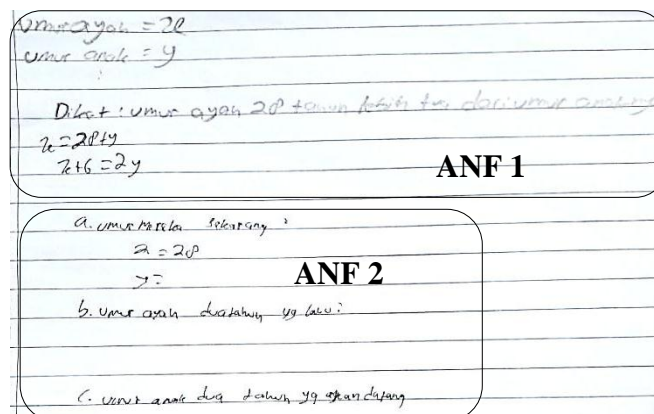 Umur ayah = x
Umur anak = y
Diket : umur ayah 28 tahun lebih tua dari umur anaknya
x = 28 + y
x + 6 = 2y
ANF 1
a. umur mereka sekarang :
x = 28
y =
ANF 2
b. Umur ayah dua tahun yg lalu :
c. umur anak dua tahun yg akan datang